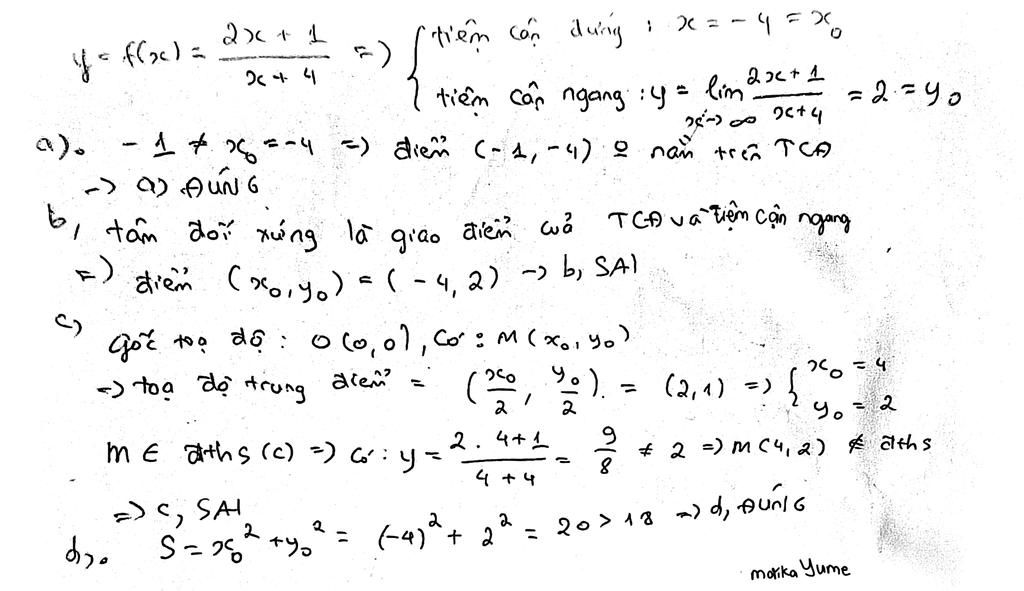 y = f(x) = \frac{2x + 1}{x + 4} => { tiệm cận đứng : x = -4 = x_0
tiệm cận ngang : y = lim_{x -> ∞} \frac{2x+1}{x+4} = 2 = y_0
a). -1 ≠ x_0 = -4 => điểm (-1, -4) o nằm trên TCĐ
-> a) ĐÚNG
b, tâm đối xứng là giao điểm của TCĐ và tiệm cận ngang
=> điểm (x_0, y_0) = (-4, 2) -> b, SAI
c) gốc toạ độ : O (0,0), Có : M (x_0, y_0)
=> toạ độ trung điểm = (\frac{x_0}{2}, \frac{y_0}{2}). = (2,1) => { x_0 = 4
y_0 = 2
M ∈ đths (C) => có : y = \frac{2 . 4+1}{4+4} = \frac{9}{8} ≠ 2 => M(4, 2) ∉ đths
=> c, SAI
d). S = x_0^2 + y_0^2 = (-4)^2 + 2^2 = 20 > 18 => d, ĐÚNG
morika Yume